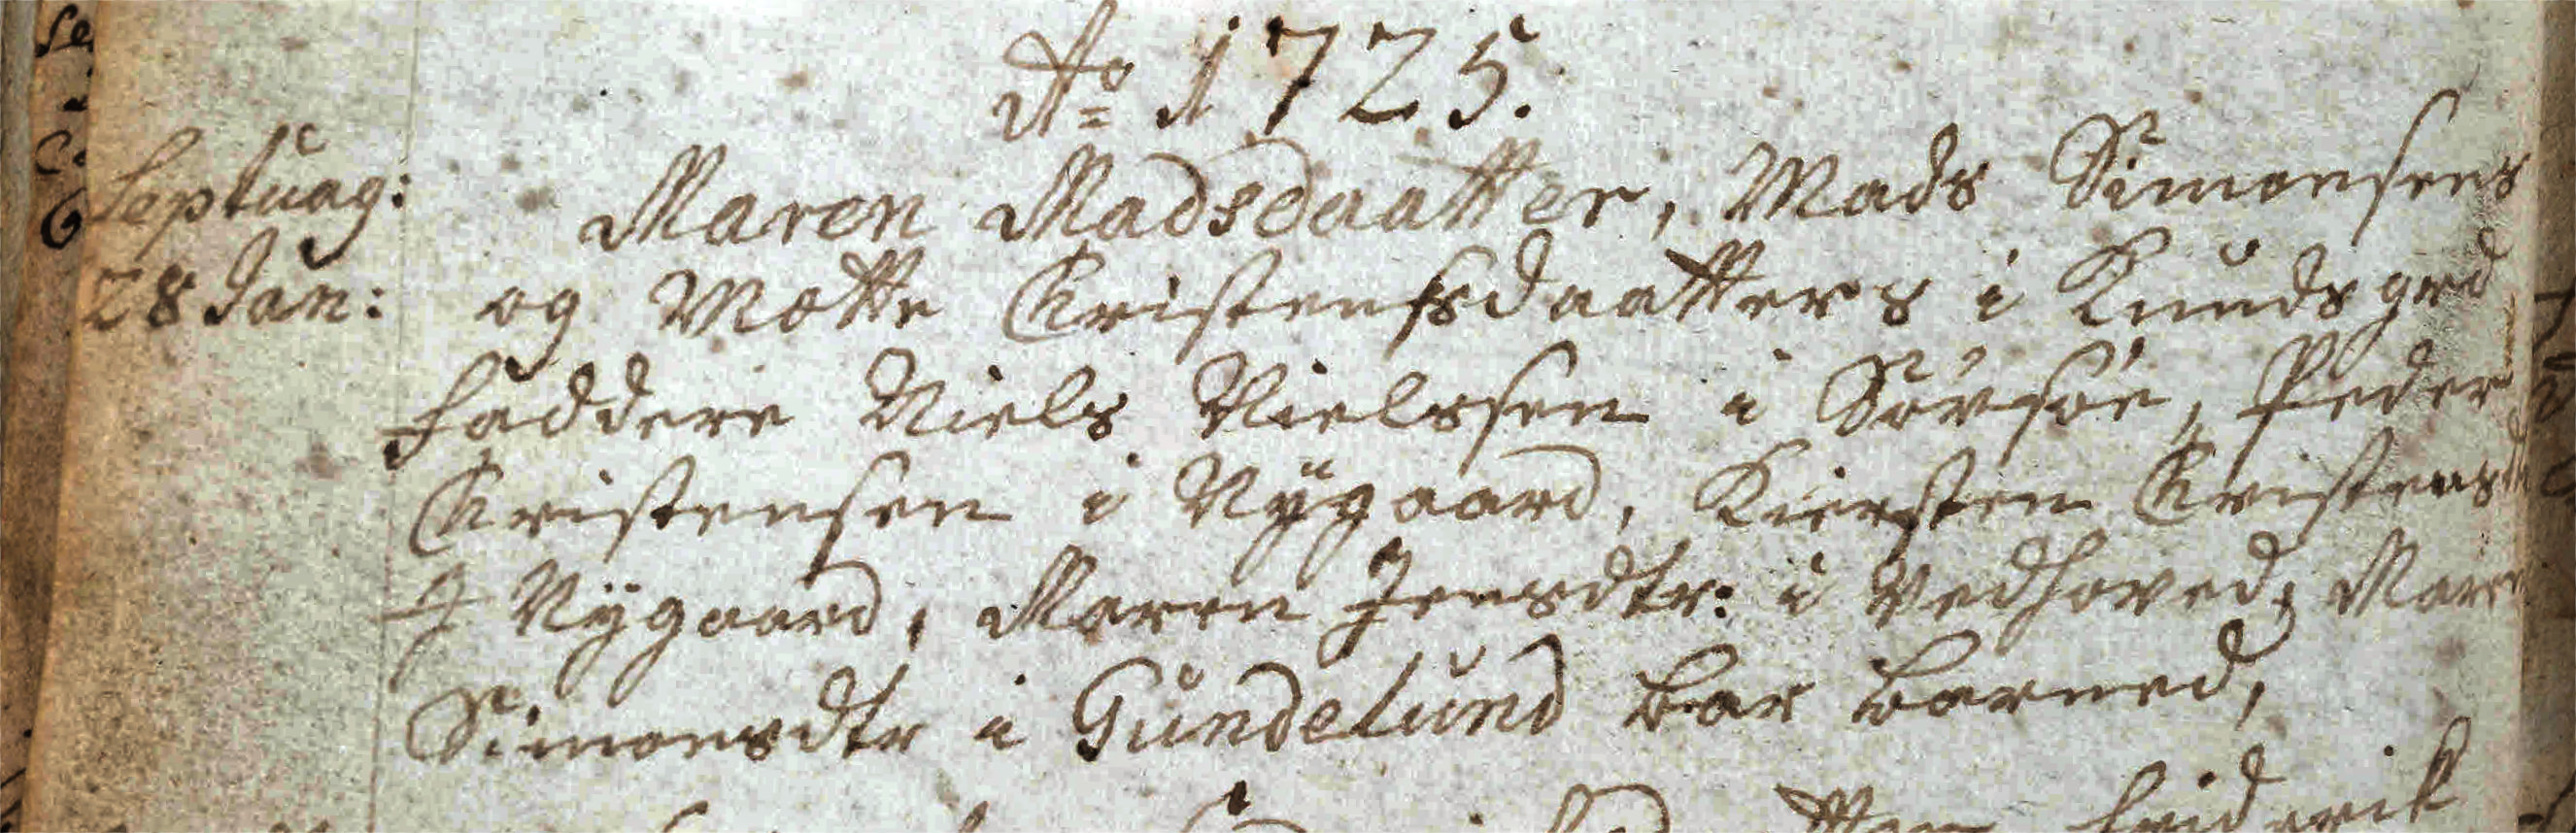 Ao 1725.
Septuag: Maren Madsdaatter, Mads Simonsens
28 Jan: og Mette Christensdaatters i Knudsgrd
Faddere Niels Nielssen i Sörsöe, Peder
Christensen i Nÿgaard, Kiersten Christensd
J Nÿgaard, Maren Jensdtr: i Vedhoved, Maren
Simonsdtr i Gundelund bar barned,
Friderik